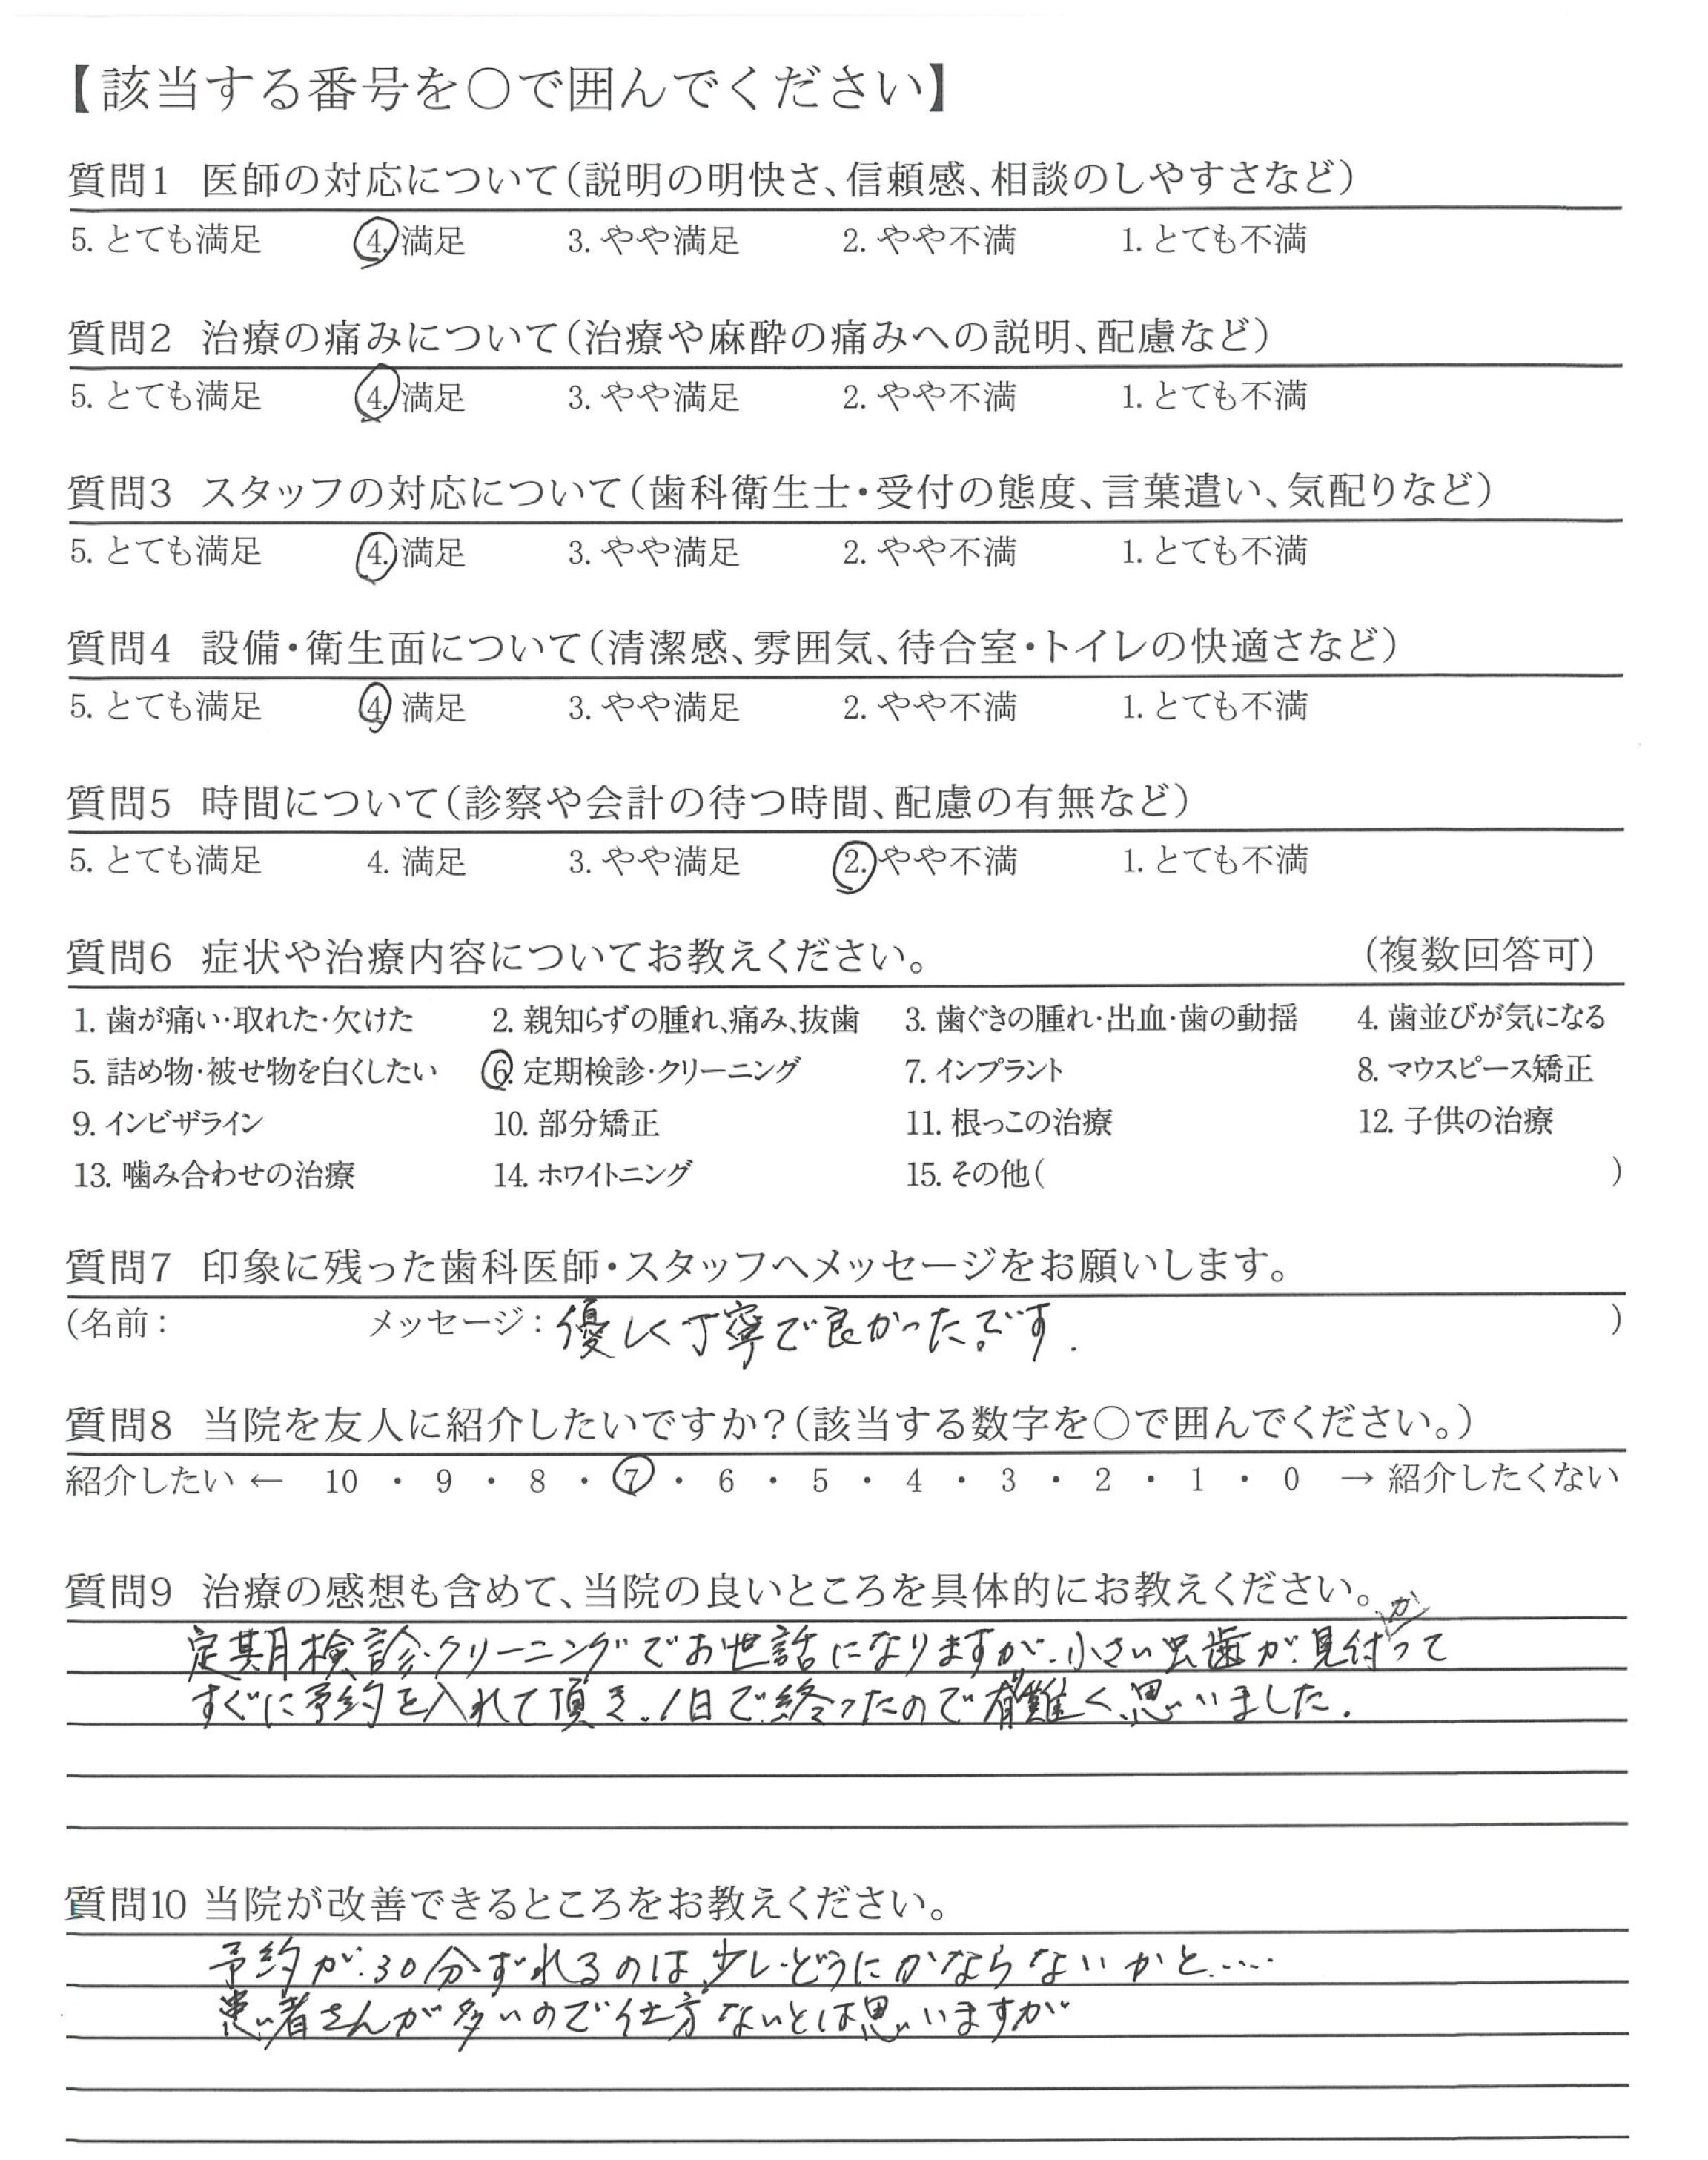 【該当する番号を○で囲んでください】
質問1 医師の対応について(説明の明快さ、信頼感、相談のしやすさなど)
5. とても満足 4. 満足 3. やや満足 2. やや不満 1. とても不満
質問2 治療の痛みについて(治療や麻酔の痛みへの説明、配慮など)
5. とても満足 4. 満足 3. やや満足 2. やや不満 1. とても不満
質問3 スタッフの対応について(歯科衛生士・受付の態度、言葉遣い、気配りなど)
5. とても満足 4. 満足 3. やや満足 2. やや不満 1. とても不満
質問4 設備・衛生面について(清潔感、雰囲気、待合室・トイレの快適さなど)
5. とても満足 4. 満足 3. やや満足 2. やや不満 1. とても不満
質問5 時間について(診察や会計の待つ時間、配慮の有無など)
5. とても満足 4. 満足 3. やや満足 2. やや不満 1. とても不満
質問6 症状や治療内容についてお教えください。 (複数回答可)
1. 歯が痛い・取れた・欠けた 2. 親知らずの腫れ、痛み、抜歯 3. 歯ぐきの腫れ・出血・歯の動揺 4. 歯並びが気になる
5. 詰め物・被せ物を白くしたい 6. 定期検診・クリーニング 7. インプラント 8. マウスピース矯正
9. インビザライン 10. 部分矯正 11. 根っこの治療 12. 子供の治療
13. 噛み合わせの治療 14. ホワイトニング 15. その他( )
質問7 印象に残った歯科医師・スタッフへメッセージをお願いします。
(名前: メッセージ: 優しく丁寧で良かったです. )
質問8 当院を友人に紹介したいですか?(該当する数字を○で囲んでください。)
紹介したい ← 10 ・ 9 ・ 8 ・ 7 ・ 6 ・ 5 ・ 4 ・ 3 ・ 2 ・ 1 ・ 0 → 紹介したくない
質問9 治療の感想も含めて、当院の良いところを具体的にお教えください。
定期検診・クリーニングでお世話になりますが、小さい虫歯が見付かって
すぐに予約を入れて頂き、1日で終ったので有難く思いました.
質問10 当院が改善できるところをお教えください。
予約が30分ずれるのは少しどうにかならないかと.....
患者さんが多いので仕方ないとは思いますが